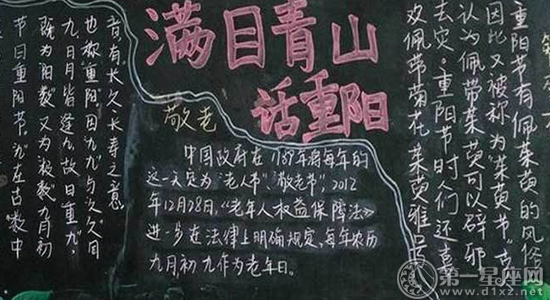 满目青山
话重阳
敬老
节日重阳节,九在古数中
既为"阳数"又为"极数"九月初
九日月皆逢九,故曰"重九",
也称"重阳"因九九与久久同
音,有长久长寿之意
中国政府在1989年将每年的
这一天定为"老人节""敬老节",2012
年12月28日,《老年人权益保障法》
进一步在法律上明确规定,每年农历
九月初九作为老年日。
重阳节有佩茱萸的风俗
因此又被称为"茱萸节"。古
认为佩带茱萸可以辟邪
去灾。重阳节时人们还喜
欢佩带菊花。茱萸雅号
第一星座网
www.d1xz.net